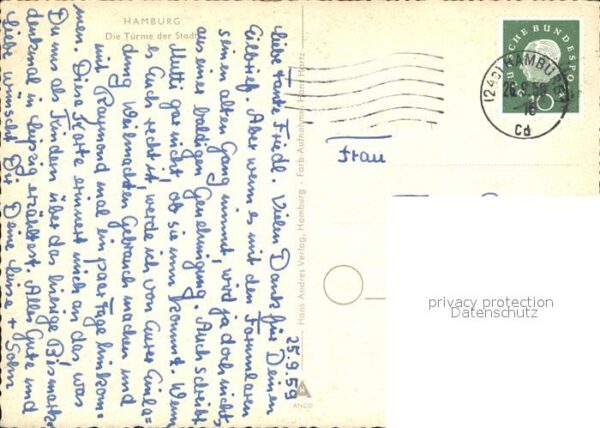 HAMBURG
Die Türme der Stadt
25.9.59
Liebe Tante Friedl. Vielen Dank für Deinen
Eilbrief. Aber wenn es mit den Formularen
seinen alten Gang nimmt, wird ja doch nichts
aus einer baldigen Genehmigung. Auch schreibt
Mutti gar nicht, ob sie nun kommt. Wenn
es Euch recht ist, werde ich von Eurer Einla=
dung Weihnachten Gebrauch machen und
mit Raymond mal ein paar Tage hinkom=
men. Diese Karte erinnert mich an das, was
Du uns als Kindern über das hiesige Bismark
denkmal in Leipzig erzähltest. Alles Gute und
Liebe wünscht Dir Deine + Sohn
Hans Andres Verlag, Hamburg - Farb-Aufnahme: Hans Hartz
ANCO
DEUTSCHE BUNDESPOST
10
(24a) HAMBURG
26.9.59
Cd
Frau
privacy protection
Datenschutz